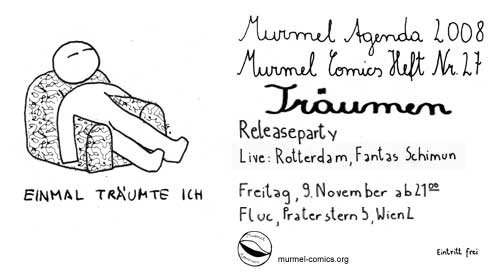 EINMAL TRÄUMTE ICH
Murmel Agenda 2008
Murmel Comics Heft Nr. 27
Träumen
Releaseparty
Live: Rotterdam, Fantas Schimun
Freitag, 9. November ab 21⁰⁰
Fluc, Praterstern 5, Wien 2
murmel-comics.org
Eintritt frei